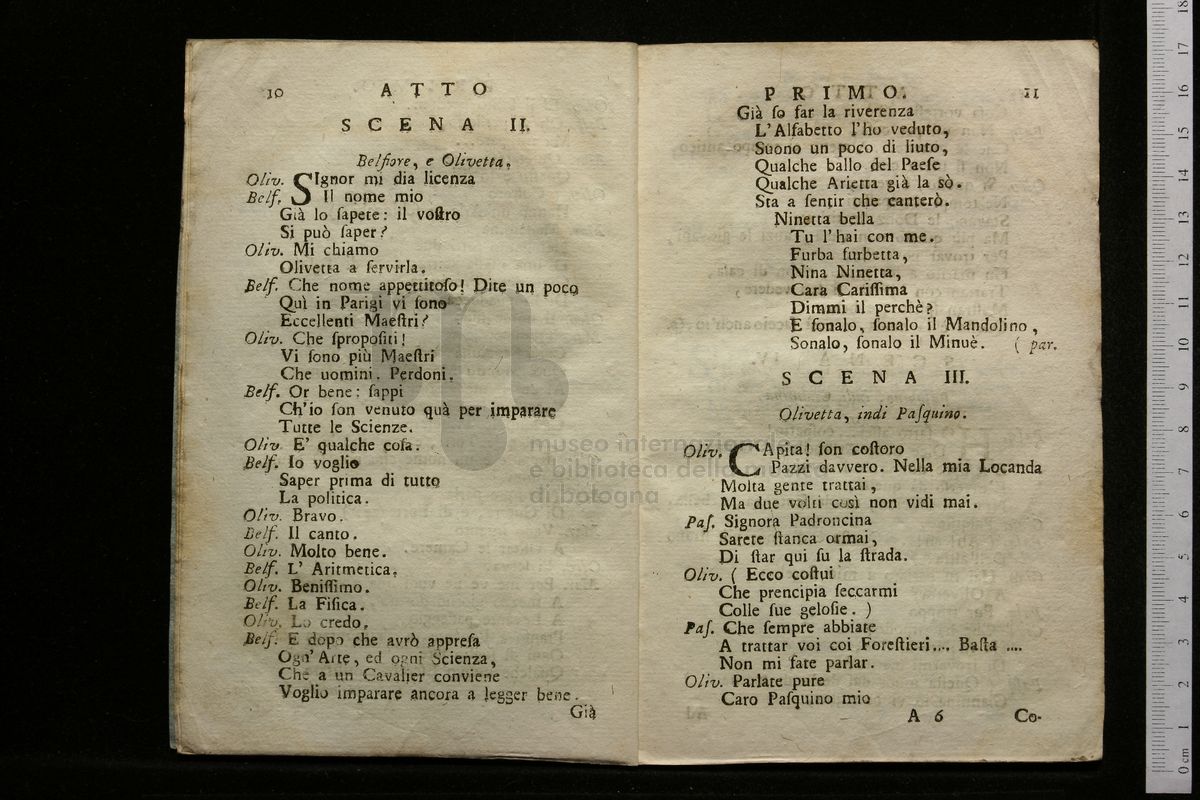 10 ATTO
SCENA II.
Belfiore, e Olivetta.
Oliv. SIgnor mi dia licenza
Belf. Il nome mio
Già lo ſapete: il voſtro
Si può ſaper?
Oliv. Mi chiamo
Olivetta a ſervirla.
Belf. Che nome appettitoſo! Dite un poco
Quì in Parigi vi ſono
Eccellenti Maeſtri?
Oliv. Che ſpropoſiti!
Vi ſono più Maeſtri
Che uomini. Perdoni.
Belf. Or bene: ſappi
Ch'io ſon venuto quà per imparare
Tutte le Scienze.
Oliv. E' qualche coſa.
Belf. Io voglio
Saper prima di tutto
La politica.
Oliv. Bravo.
Belf. Il canto.
Oliv. Molto bene.
Belf. L' Aritmetica.
Oliv. Beniſſimo.
Belf. La Fiſica.
Oliv. Lo credo.
Belf. E dopo che avrò appreſa
Ogn' Arte, ed ogni Scienza,
Che a un Cavalier conviene
Voglio imparare ancora a legger bene.
Già
PRIMO. 11
Già ſo far la riverenza
L'Alfabetto l'ho veduto,
Suono un poco di liuto,
Qualche ballo del Paeſe
Qualche Arietta già la sò.
Sta a ſentir che canterò.
Ninetta bella
Tu l'hai con me.
Furba furbetta,
Nina Ninetta,
Cara Cariſſima
Dimmi il perchè?
E ſonalo, ſonalo il Mandolino,
Sonalo, ſonalo il Minuè. (par.
SCENA III.
Olivetta, indi Paſquino.
Oliv. CApita! ſon coſtoro
Pazzi davvero. Nella mia Locanda
Molta gente trattai,
Ma due volti così non vidi mai.
Paſ. Signora Padroncina
Sarete ſtanca ormai,
Di ſtar qui ſu la ſtrada.
Oliv. (Ecco coſtui
Che prencipia ſeccarmi
Colle ſue geloſie.)
Paſ. Che ſempre abbiate
A trattar voi coi Foreſtieri.... Baſta ....
Non mi fate parlar.
Oliv. Parlate pure
Caro Paſquino mio
A 6 Co-
museo internazionale
e biblioteca della musica
di bologna
0 cm 1 2 3 4 5 6 7 8 9 10 11 12 13 14 15 16 17 18